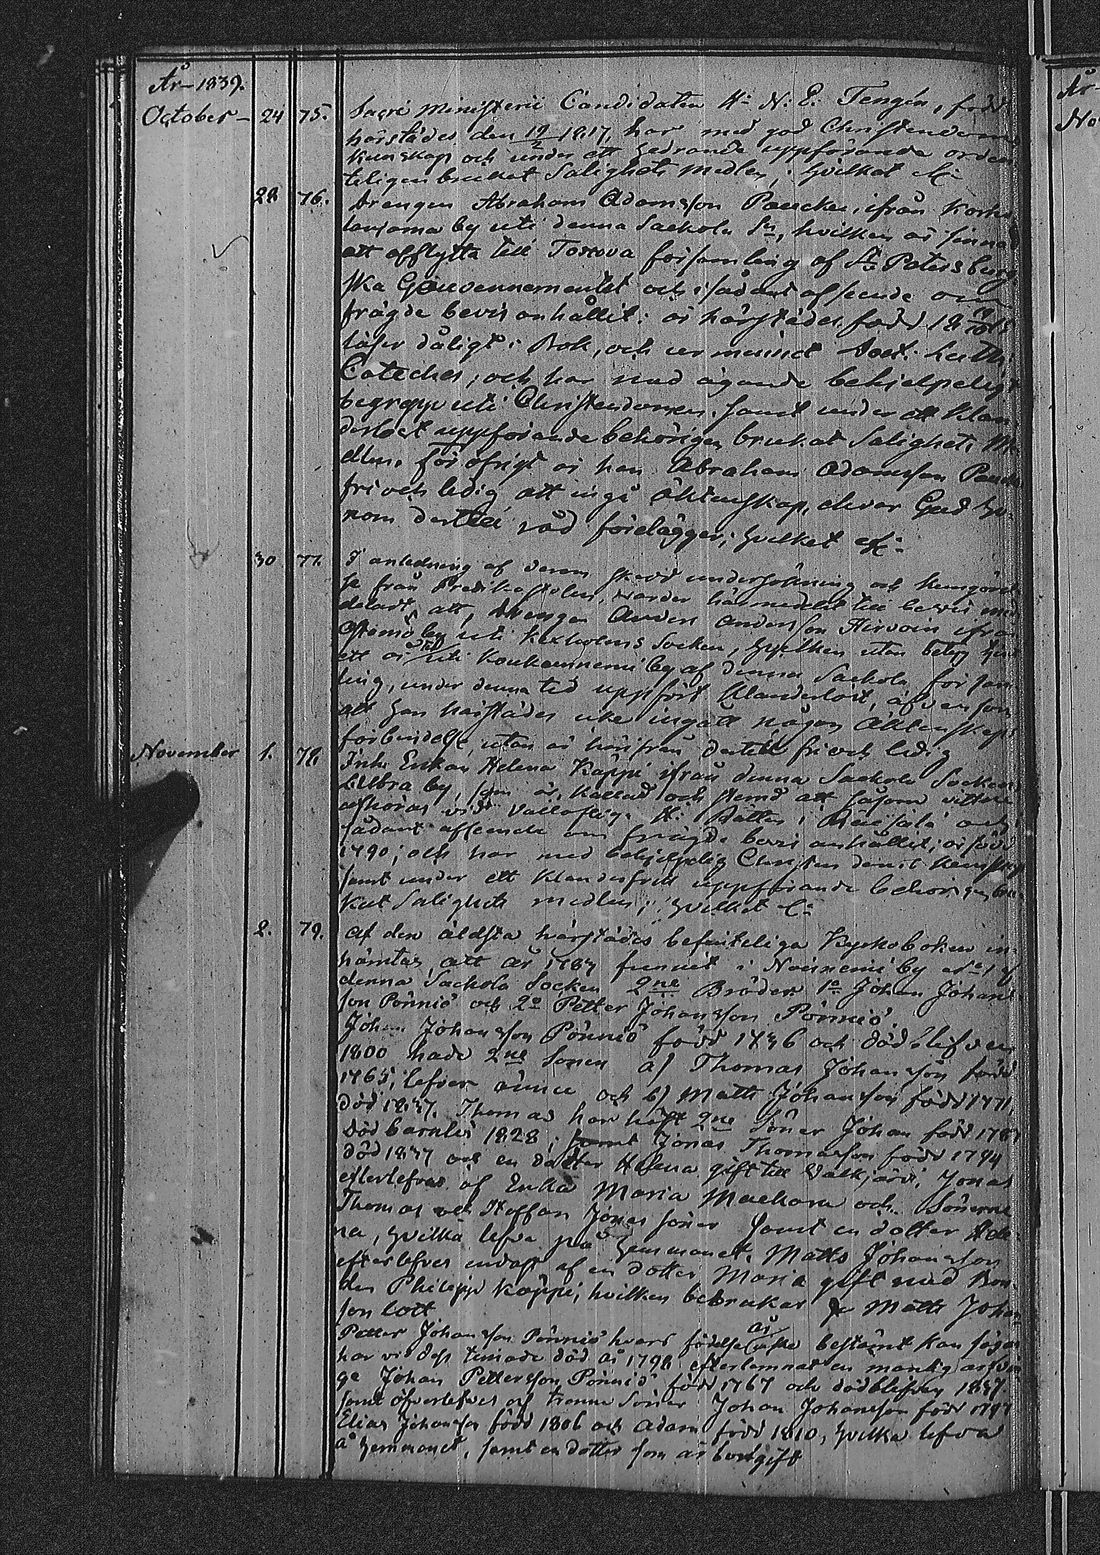 År 1839.
October - 24 75. Sacri Ministerii Candidaten Hr N: E. Tengén, född
härstädes den 19/2 1817, har med god Christendoms
kunskap och under ett hedrande uppförande orden
teligen brukat Salighets medlen; hvilket &c:
28 76. Drengen Abraham Adamsson Paucku, ifrån
by uti denna Sackola Sn, hvilken är sinnad
att afflytta till Toxova församling af St Petersburg
ska Gouvernementet och i sådant afseende om
frägde bevis anhållit: är härstädes född 18
läser dåligt i Bok, och ur minnet Doct. Luth:
Cateches, och har med ägande behjelpeligt
begrepp uti Christendomen samt under ett klan
derlöst uppförande behörigen brukat Salighets M
dlen. för öfrigt är han Abraham Adamsson Paucku
fri och ledig att ingå äktenskap, elvar Gud ho
nom dertill råd förelägger; hvilket &c:
30 77. I anledning af derom skedd undersökning och kungörel
se från Predikostolen, varder härmedelst till bevis med
deladt, att, Drengen Anders Andersson Hirvoin ifrån
by uti Kexholms Socken, hvilken utan betyg
ett år tid uti Koukunniemi by af denna Sackola försam
ling, under denna tid uppfört klanderlöst, äfvensom
att han härstädes icke ingått någon Äktenskaps
förbindelse utan är härifrån dertill fri och ledig
November 1. 78. Enkan Helena Käppi ifrån denna Sackola Socken
by, som är kallad och stemd att såsom vittne
afhöras vid Vällofliga Hr Rätten i Räisälä och i
sådant afseende om frägde bevis anhållit; är född
1790; och har med behjelpelig Christendoms kunskap
samt under ett klanderfritt uppförande behörigen bru
kat Salighets medlen; hvilket &c:
2. 79. Af den äldsta härstädes befinteliga Kyrkoboken in
hämtas, att år 1787 funnits i Noisniemi by No 1 af
denna Sackola Socken 2ne Bröder 1o Johan Johans
son Pönniö och 2o Petter Johansson Pönniö.
Johan Johansson Pönniö född 1736 och död blefven
1800 hade 2ne söner a) Thomas Johansson född
1765, lefver ännu och b) Matts Johansson född 1771,
död 1837. Thomas har haft 2ne Söner Johan född 1787
död barnlös 1828. samt Jonas Thomasson född 1794
död 1837 och en dotter Helena gift till Valkjärvi. Jonas
efterlefves af Enka Maria Muchona och Sönerne
Thomas och Staffan Jonas söner samt en dotter Hele
na, hvilka lefva på hemmanet. Matts Johansson
efterlefves endast af en dotter Maria gift med Bon
den Philipp Käppi, hvilken bebrukar Matts Johans
son lott
Petter Johansson Pönniö hvars födelse år icke bestämt kan sägas
har vid dess timade död år 1798 efterlemnat en manlig arfvin
ge Johan Pettersson Pönniö född 1767 och dödblefven 1837.
samt öfverlefves af trenne Söner Johan Johansson född 1797
Elias Johansson född 1806 och Adam född 1810, hvilka lefva
å hemmanet, samt en dotter som är bortgift
År
No